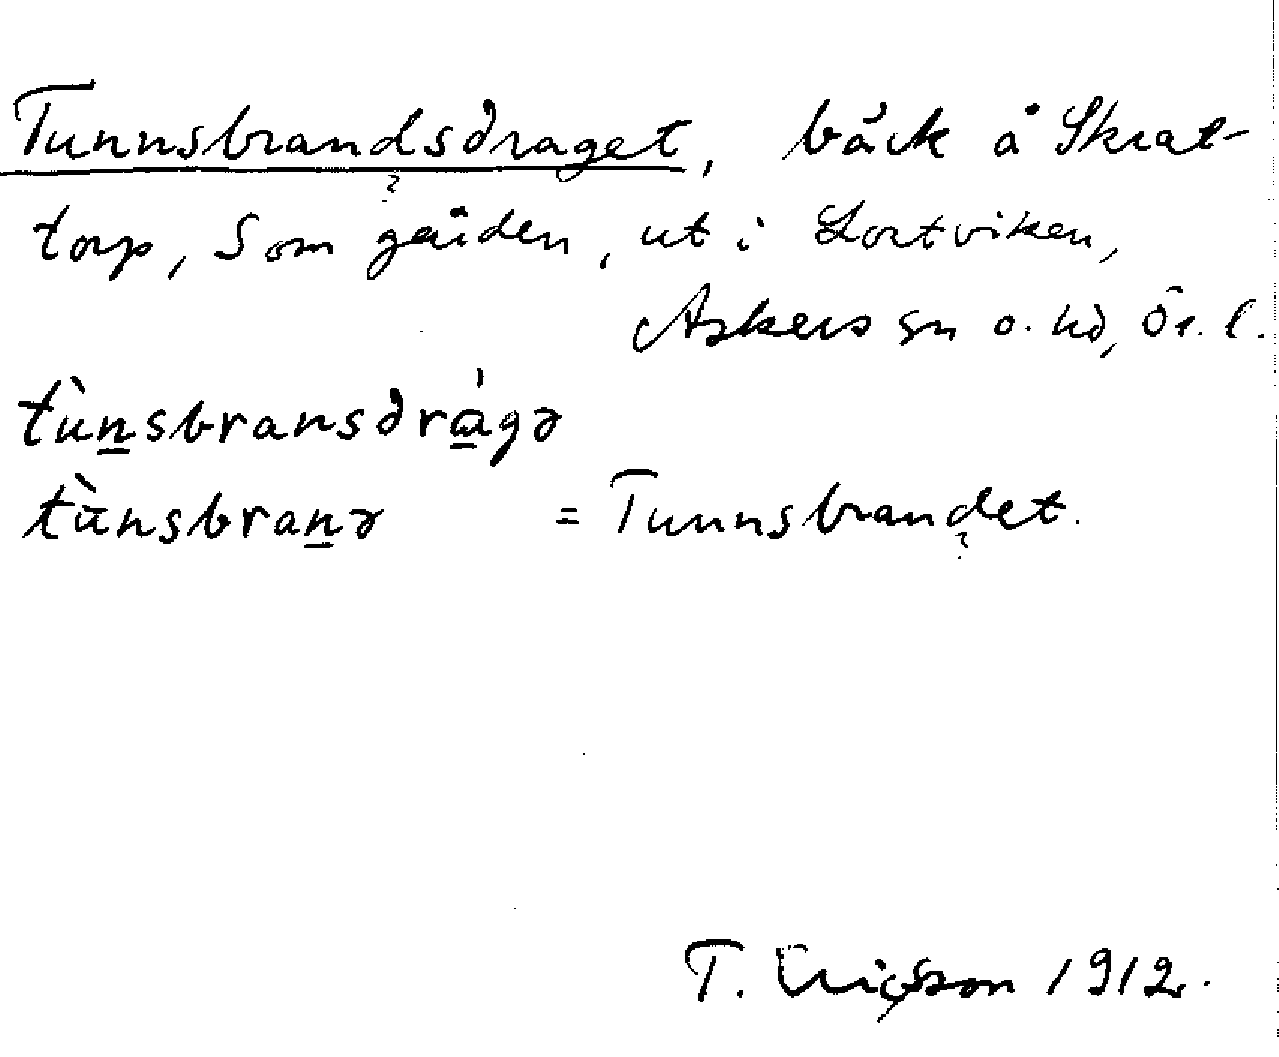 Tunnsbrandsdraget, bäck å Skrat-
?
torp, Som gården, ut i Lortviken,
Askers sn o. hd, Ör. l.
tùn̲sbransdrá̲gə
tùnsbran̲ə = Tunnsbrandet.
?
T. Ericsson 1912.